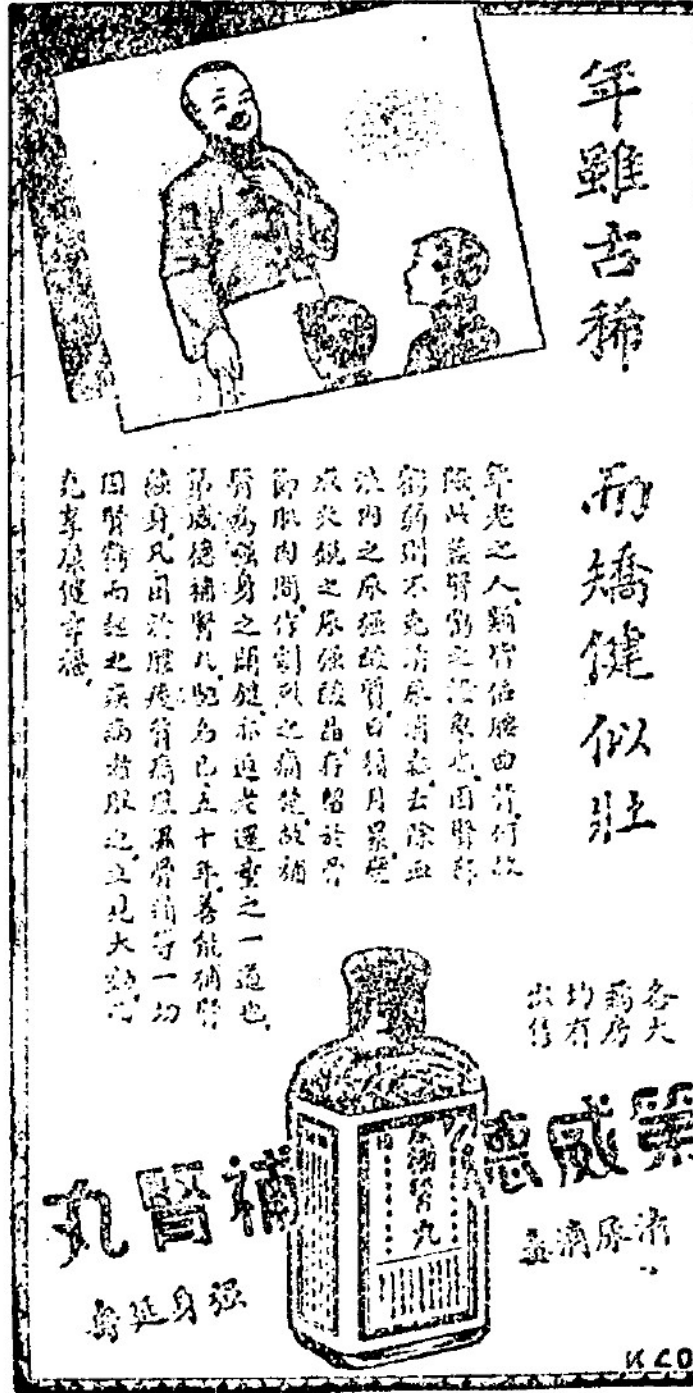 年雖古稀 而矯健似壯
年老之人類皆佝腰曲背何故
此蓋腎弱之現象也因腎部
衰弱則不克清尿消毒去除血
液內之尿强酸質日積月累變
成尖銳之尿强酸晶存留於骨
節肌肉間作劇烈之痛楚故補
腎為强身之關鍵亦返老還童之一道也
第威德補腎丸馳名已五十年善能補腎
强身凡因於腰痠背痛風濕骨痛等一切
因腎弱而起之疾病者服之立見大效而
克享康健幸福
各大
藥房
均有
出售
第威德補腎丸
清尿消毒
强身延壽